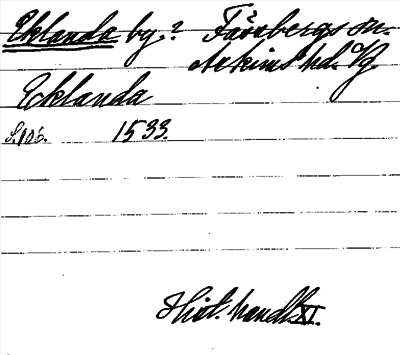 Eklanda by.? Färnbergs sn.
Askims hd. Vg.
Ecklanda
S. 106. 1533.
Hist. handl. XI.